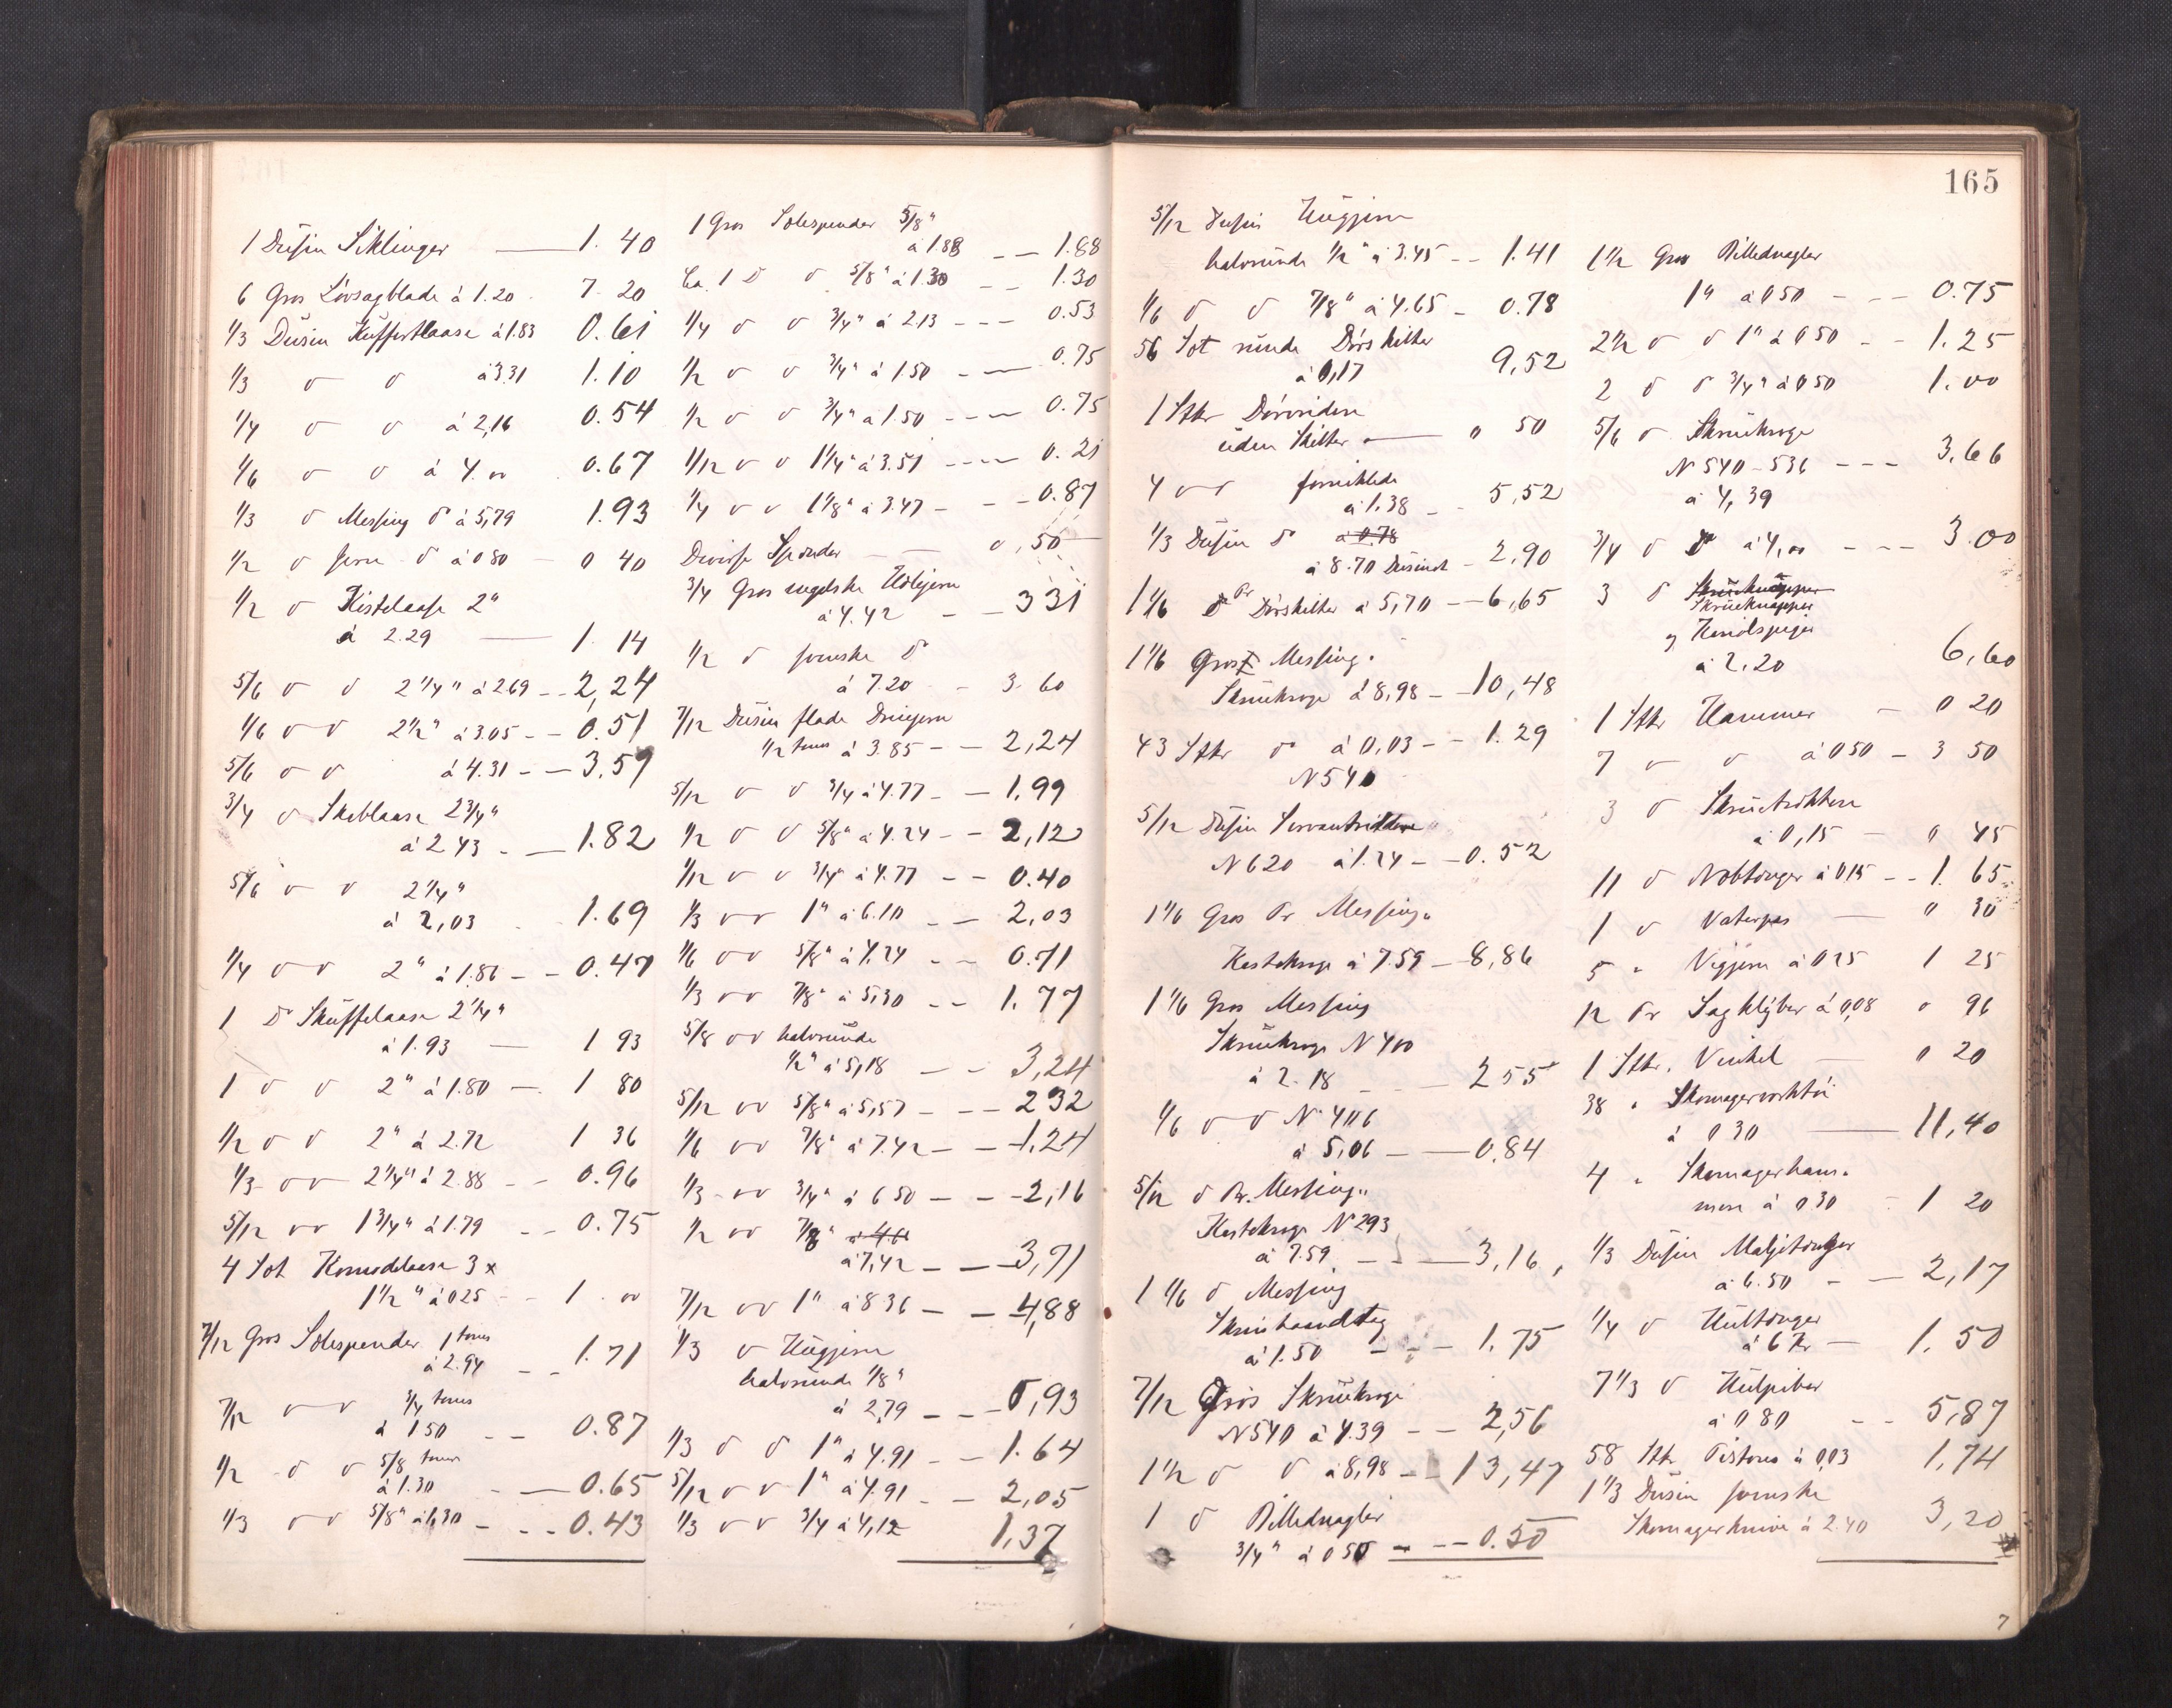 1 Dusin Siklinger 1. 40
6 Gros Løvsagblade á 1.20 7. 20
1/3 Dusin Kuffertlaase á 1.83 0.61
1/3 do do á 3.31 1.10
1/4 do do á 2,16 0.54
1/6 do do á 4.00 0.67
1/3 do Messing do á 5,79 1.93
1/2 do Jern do á 0 80 0 40
1/2 do Kistelaase 2"
á 2.29 1. 14
5/6 do do 2 1/4" á 2.69 2,24
1/6 do do 2 1/2" á 3.05 0.51
5/6 do do á 4.31 3.59
3/4 do Skablaase 2 3/4"
á 2 43 1.82
5/6 do do 2 1/4"
á 2,03 1.69
1/4 do do 2" á 1.86 0.47
1 do Skuffelaase 2 1/4"
á 1.93 1 93
1 do do 2" á 1.80 1 80
1/2 do do 2" á 2.72 1 36
1/3 do do 2 1/4" á 2.88 0.96
5/12 do do 1 3/4" á 1.79 0.75
4 Sot Komodelaase 3 x
1 1/2" á 0 25 1. 00
7/12 Gros Solespender 1 toms
á 2.94 1.71
7/12 do do 3/4 toms
á 1 50 0.87
1/2 do do 5/8 toms
á 1.30 0.65
1/3 do do 5/8" á 1.30 0.43
1 Gros Solespender 5/8"
á 1.88 1.88
Ca. 1 do do 5/8" á 1.30 1.30
1/4 do do 3/4" á 2.13 0.53
1/2 do do 3/4" á 1.50 0.75
1/2 do do 3/4" á 1.50 0.75
1/12 do do 1 1/4" á 3.51 0.21
1/4 do do 1 1/8" á 3.47 0.87
Diverse Spender 0,50
3/4 Gros engelske Hulejern
á 4.42 331
1/2 do svenske do
á 7.20 3. 60
7/12 Dusin flade
1/2 toms á 3.85 2,24
5/12 do do 3/4 á 4.77 1,99
1/2 do do 5/8" á 4.24 2,12
1/12 do do 3/4" á 4.77 0.40
1/3 do do 1" á 6.10 2,03
1/6 do do 5/8" á 4.24 0.71
1/3 do do 7/8" á 5,30 1.77
5/8 do do halvrunde
1/2" á 5,18 3,24
5/12 do do 5/8" á 5,57 232
1/6 do do 7/8" á 7.42 1,24
1/3 do do 3/4" á 6 50 2,16
1/2 do do 7/8"
á 7,42 3,71
7/12 do do 1" á 8 36 4,88
1/3 do Hugjern
halvrunde 1/8"
á 2,79 0,93
1/3 do do 1" á 4.91 1.64
5/12 do do 1" á 4.91 2,05
1/3 do do 3/4 á 4,12 1,37
165
5/12 Dusin Hugjern
halvrunde 1/2" á 3.45 1.41
1/6 do do 7/8" á 4.65 0.78
56 Sot runde Dørskilter
á 0,17 9,52
1 Stkr Dørvridere
uden Skilter " 50
4 do do forniklede
á 1.38 5,52
1/3 Dusin do á 0.78
á 8.70 Dusinet 2,90
1 1/6 do Pr Dørskilter á 5,70 6,65
1 1/6 Gros Messing-
Skruekroge á 8,98 10,48
43 Stkr do á 0,03 1.29
N 540
5/12 Dusin
N 620 á 1.24 0.52
1 1/6 Gros Pr Messing-
Kastekroge á 7.59 8,86
1 1/6 Gros Messing
Skruekroge N 400
á 2.18 2 55
1/6 do do N 406
á 5,06 0.84
5/12 do Pr. Messing-
Kastekroge N 293
á 7.59 3,16
1 1/6 do Messing
á 1.50 1.75
7/12 Gros Skruekroge
N 540 á 4.39 2,56
1 1/2 do do á 8,98 13,47
1 do Billednagler
3/4" á 0 50 0.50
1 1/2 Gros Billednagler
1" á 0 50 0.75
2 1/2 do do 1" á 0 50 1.25
2 do do 3/4" á 0 50 1.00
5/6 do Skruekroge
N 540-536 3.66
á 4,39
3/4 do do á 4,00 3.00
3 do Skrueknapper
Skrueknapper
og
á 2.20 6,60
1 Stkr Hammer 0 20
7 do do á 0 50 3 50
3 do Skruetrækkere
á 0,15 " 45
11 do Nebtænger á 0 15 1. 65
1 do Vaterpas " 30
5 " Vigjern á 0 25 1 25
12 Pr Sagklyber á 0,08 0 96
1 Stkr. Vinkel 0 20
38 " Skomagerverktøi
á 0 30 11,40
4 " Skomagerham-
mere á 0 30 1 20
1/3 Dusin Maljetænger
á 6.50 2,17
1/4 do Hultænger
á 6 Kr 1. 50
7 1/3 do Hulpiber
á 0 80 5,87
58 Stk Pistoner á 0,03 1,74
1 1/3 Dusin svenske
Skomagerknive á 2.40 3,20
7